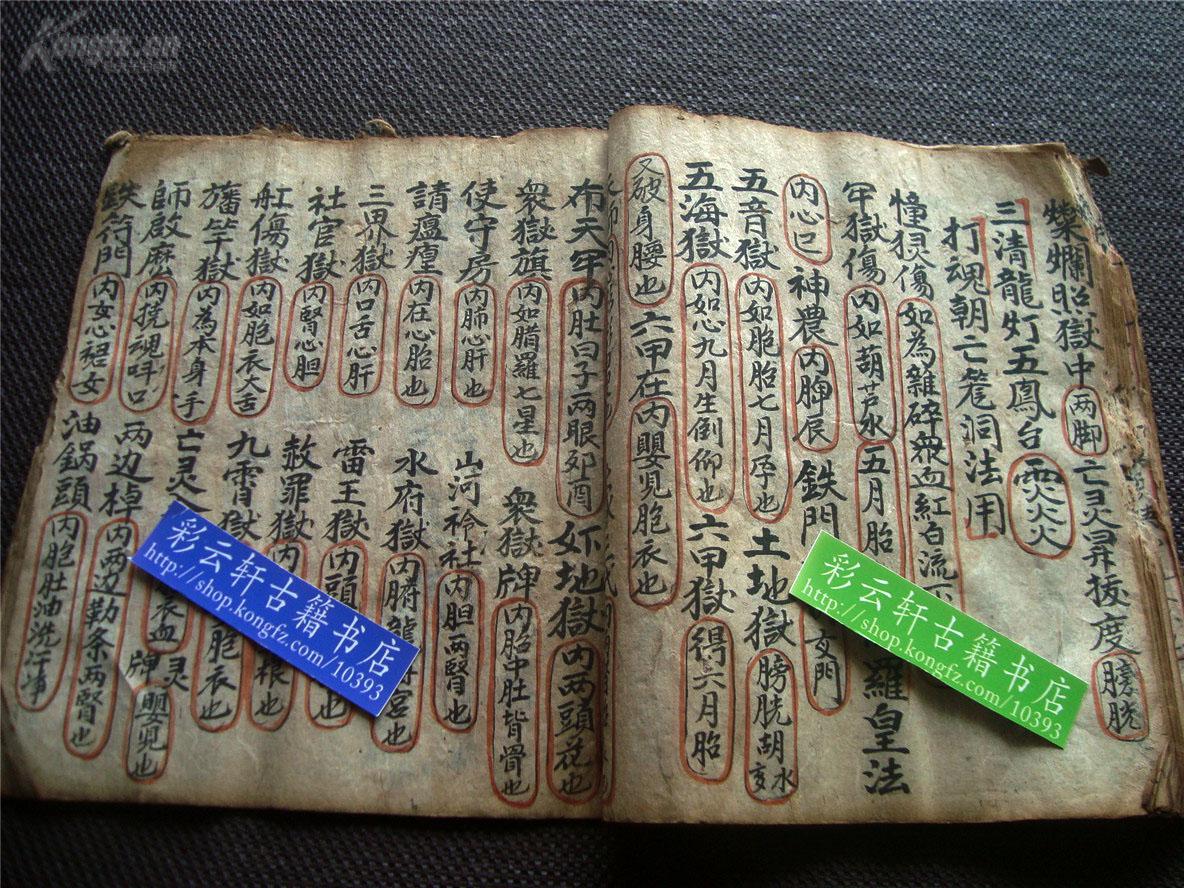 Kongfz.cn
燦爛照獄中 两脚 亡灵昇拔度 膀胱
三清龍灯五鳳台 霊火火
打魂朝亡篭洞法用
憧猖傷 如為雜碎衆血紅白流
牢獄傷 内如葫芦水 五月胎 羅皇法
内心已 神農 内脾辰 鉄門 女門
五音獄 内如胞胎七月孕也 土地獄 膀胱胡水亥
五海獄 内如心九月生倒仰也 六甲獄 得六月胎
又破身腰也 六甲在内嬰兒胞衣也
布天牢 内肚白子两眼卯酉 奼地獄 内两頭花也
衆獄旗 内如腊羅七星也 衆獄牌 内胎中肚背骨也
使守房 内肺心肝也 山河衿社 内胆两腎也
請瘟瘟 内在心胎也 水府獄 内腑龍宫也
三界獄 内口舌心肝 雷王獄 内頭也
社官獄 内腎心胆 赦罪獄 内根也
缸傷獄 内如胞衣大舌 九霄獄 胞衣也
旛竿獄 内為本身手 亡灵 衣血灵
師啟麽 内挠魂叫口 两边棹 内两边勒条两腎也 牌 嬰兒也
鉄符門 内安心裙女 油鍋頭 内胞肚油洗汙净
彩云轩古籍书店
http://shop.kongfz.com/10393
彩云轩古籍书店
http://shop.kongfz.com/10393